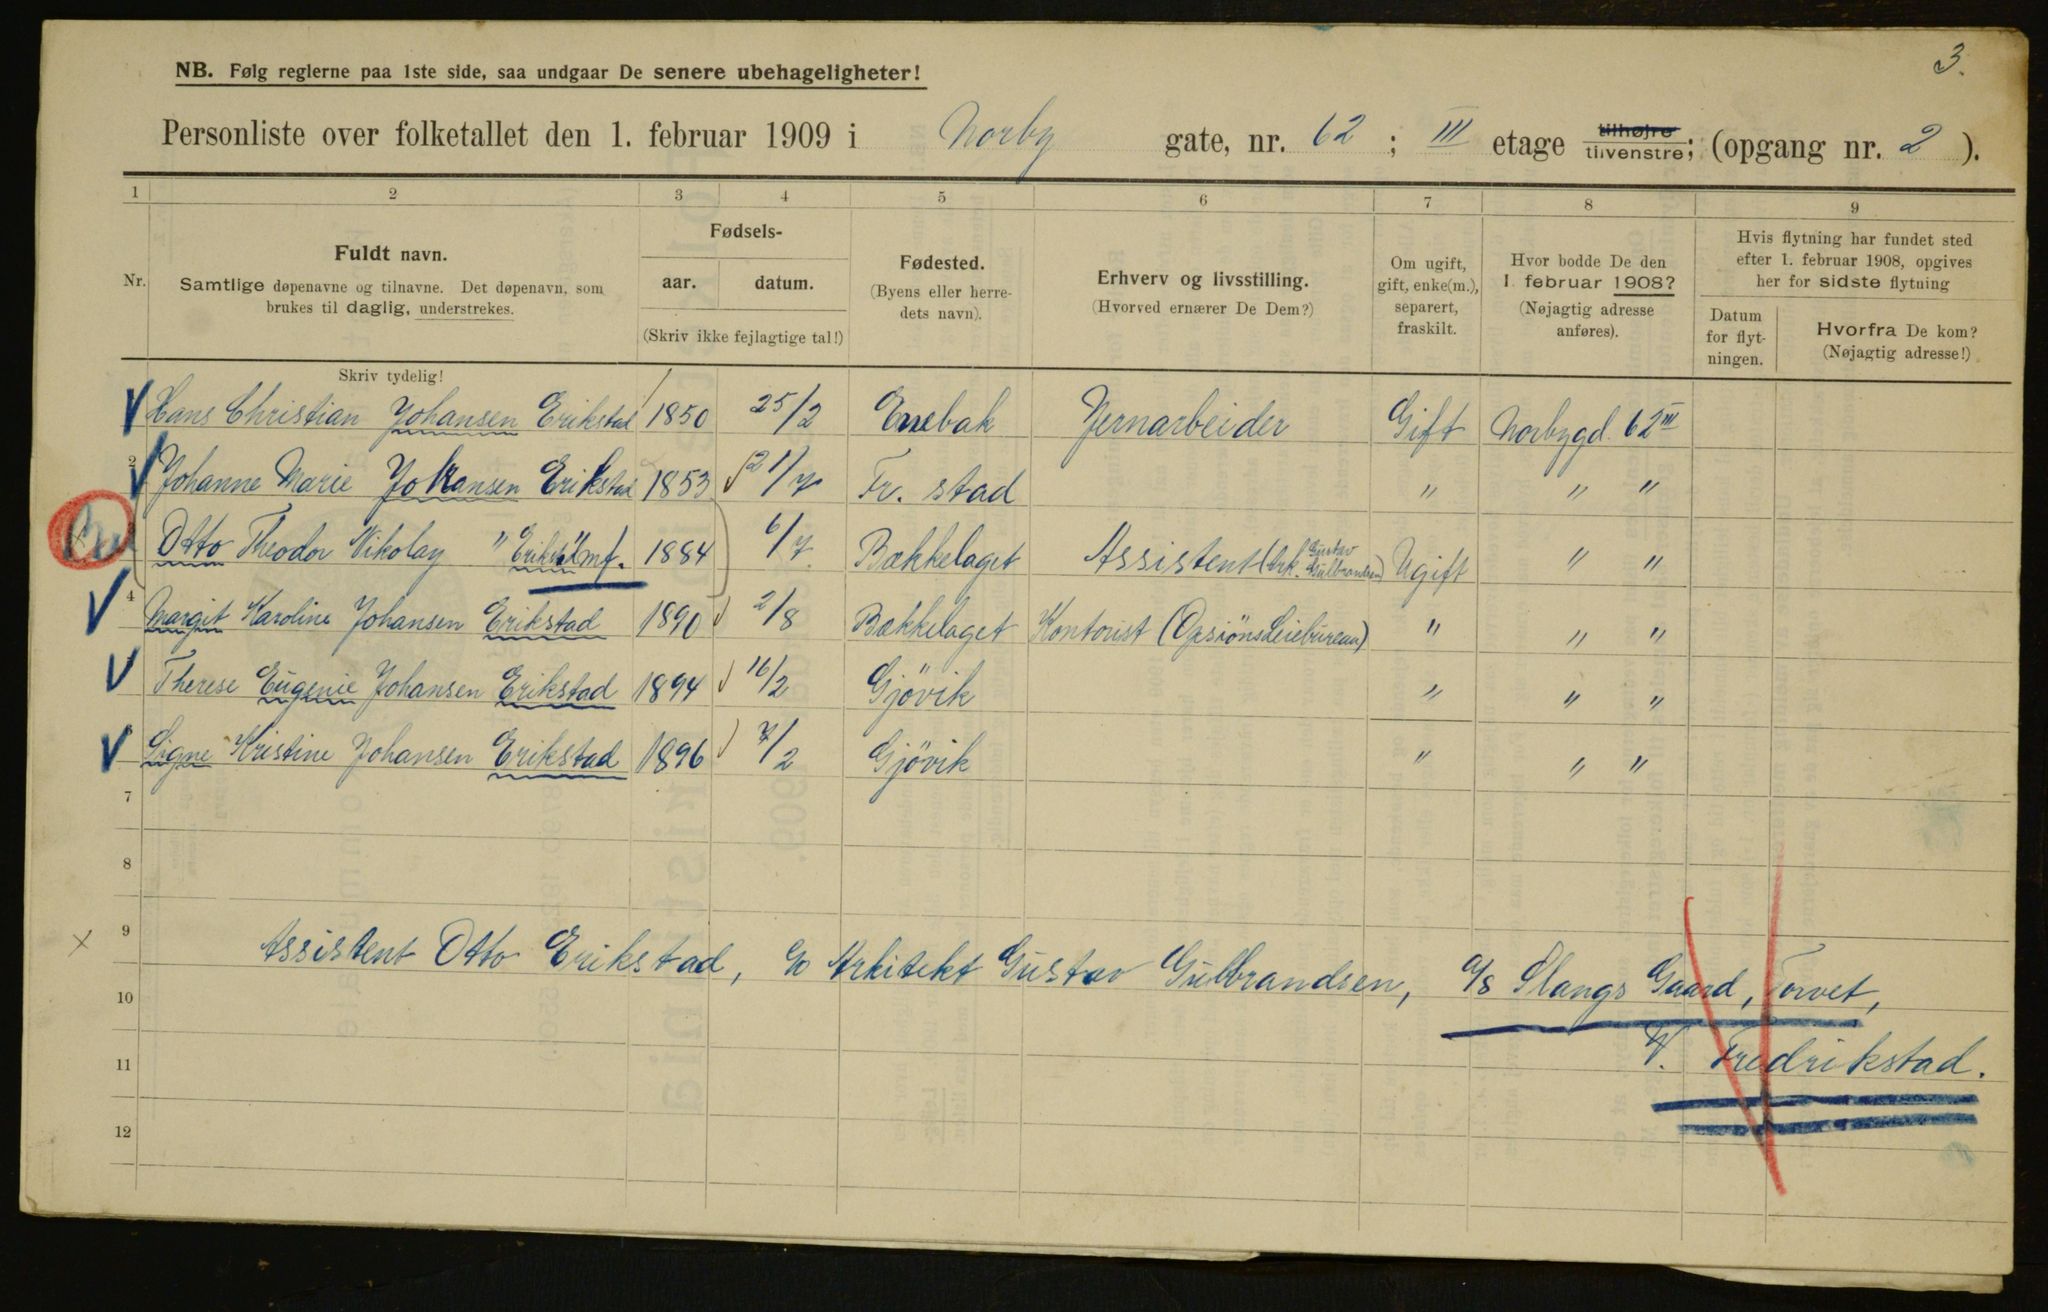 3.
NB. Følg reglerne paa 1ste side, saa undgaar De senere ubehageligheter!
Personliste over folketallet den 1. februar 1909 i Norby gate, nr. 62 ; III etage tilhøjre tilvenstre; (opgang nr. 2 ).
1 2 3 4 5 6 7 8 9
Nr.
Fuldt navn.
Samtlige døpenavne og tilnavne. Det døpenavn, som
brukes til daglig, understrekes.
Fødsels-
aar. datum.
(Skriv ikke fejlagtige tal!)
Fødested.
(Byens eller herre-
dets navn).
Erhverv og livsstilling.
(Hvorved ernærer De Dem?)
Om ugift,
gift, enke(m.),
separert,
fraskilt.
Hvor bodde De den
1. februar 1908?
(Nøjagtig adresse
anføres).
Hvis flytning har fundet sted
efter 1. februar 1908, opgives
her for sidste flytning
Datum
for flyt-
ningen.
Hvorfra De kom?
(Nøjagtig adresse!)
Skriv tydelig!
Hans Christian Johansen Erikstad 1850 25/2 Enebak Jernarbeider Gift Norbygd. 62 III
2 Johanne Marie Johansen Erikstad 1853 21/7 Fr. stad " " "
3 Otto Theodor Nikolay " 1884 6/7 Bækkelaget Assistent (Ark. Gustav Gulbrandsen) Ugift " "
4 Margit Karoline Johansen Erikstad 1890 2/8 Bækkelaget Kontorist (Opsiöns Leiebureau) " " "
Therese Eugenie Johansen Erikstad 1894 16/2 Gjövik " " "
Signe Kristine Johansen Erikstad 1896 7/2 Gjövik " " "
7
8
9
x Assistent Otto Erikstad, c/o Arkitekt Gustav Gulbrandsen, a/s Slangs Gaard, Torvet,
10
V. Fredrikstad.
11
12